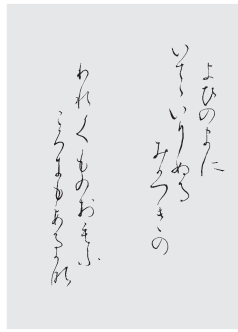 よひのまに
いてゝいりぬる
みかつきの
われてものおもふ
ころにもあるかな